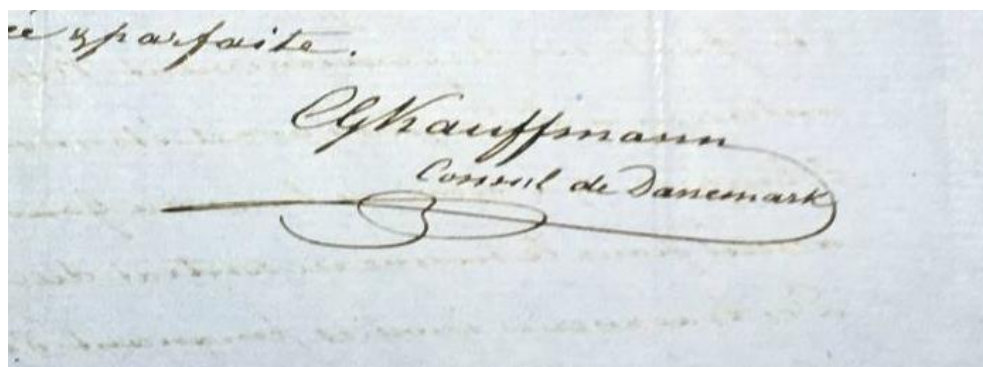 & parfaite.
CGKauffmann
Consul de Danemark